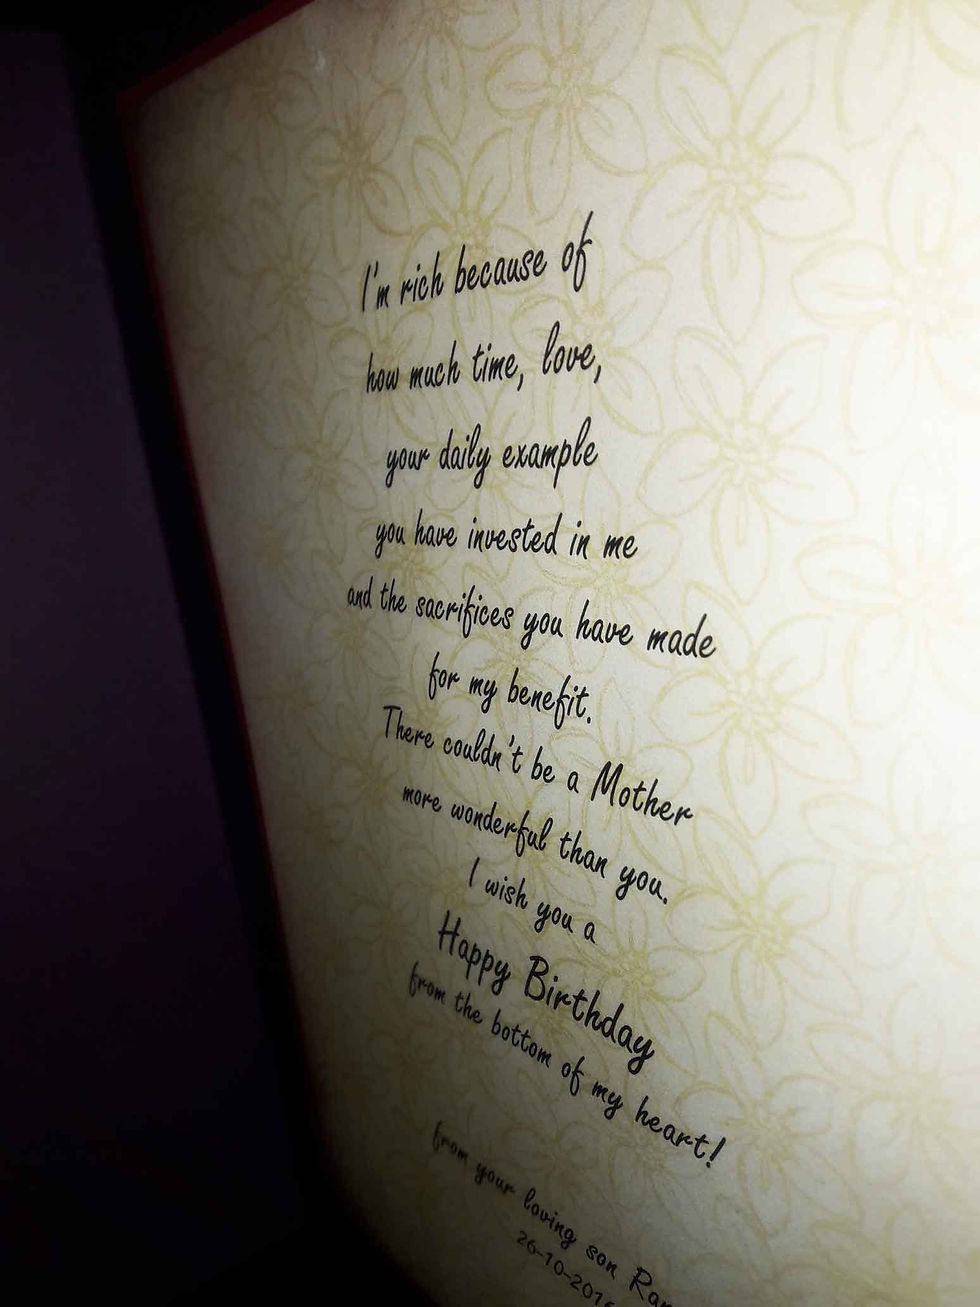 I'm rich because of
how much time, love,
your daily example
you have invested in me
and the sacrifices you have made
for my benefit.
There couldn't be a Mother
more wonderful than you.
I wish you a
Happy Birthday
from the bottom of my heart!
from your loving son